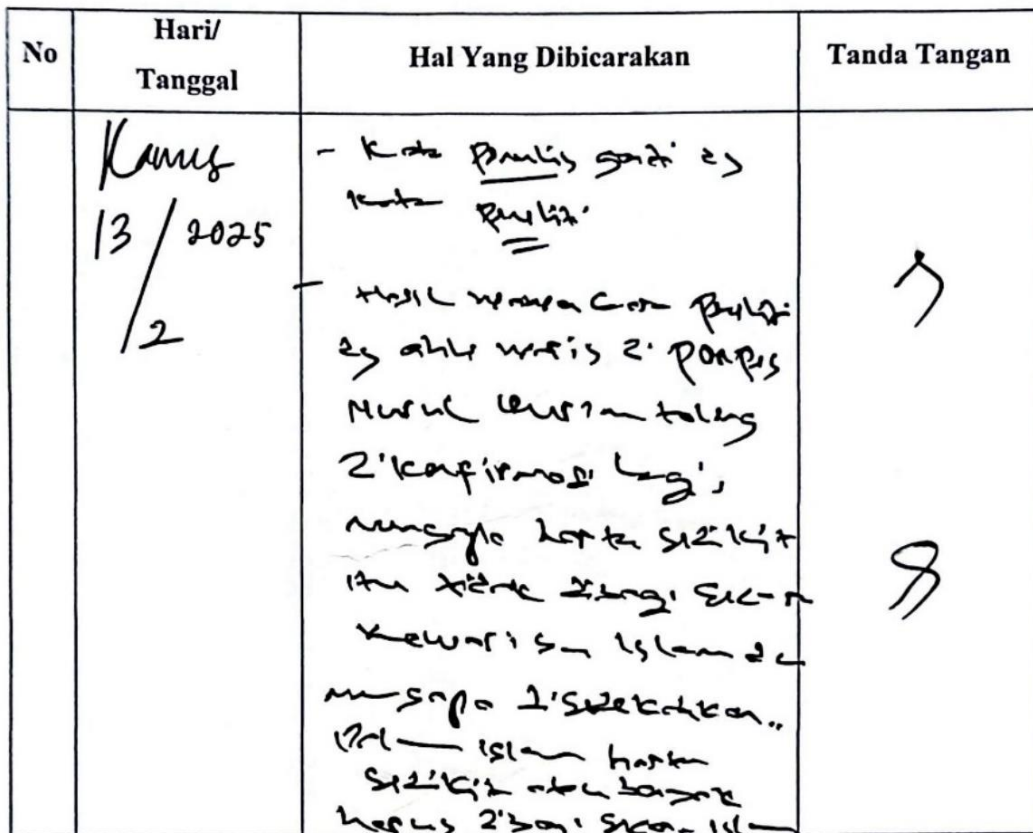 No
Hari/
Tanggal
Hal Yang Dibicarakan
Tanda Tangan
Kamis
13 / 2025
/ 2
- Kata penulis ganti dg
kata peneliti
- Hasil wawancara peneliti
dg ahli waris di ponpes
Nurul tolong
dikonfirmasi lagi,
mengapa harta sedikit
itu tidak dibagi secara
kewarisan Islam dan
mengapa disedekahkan..
Dalam Islam harta
sedikit atau banyak
harus dibagi secara Islam